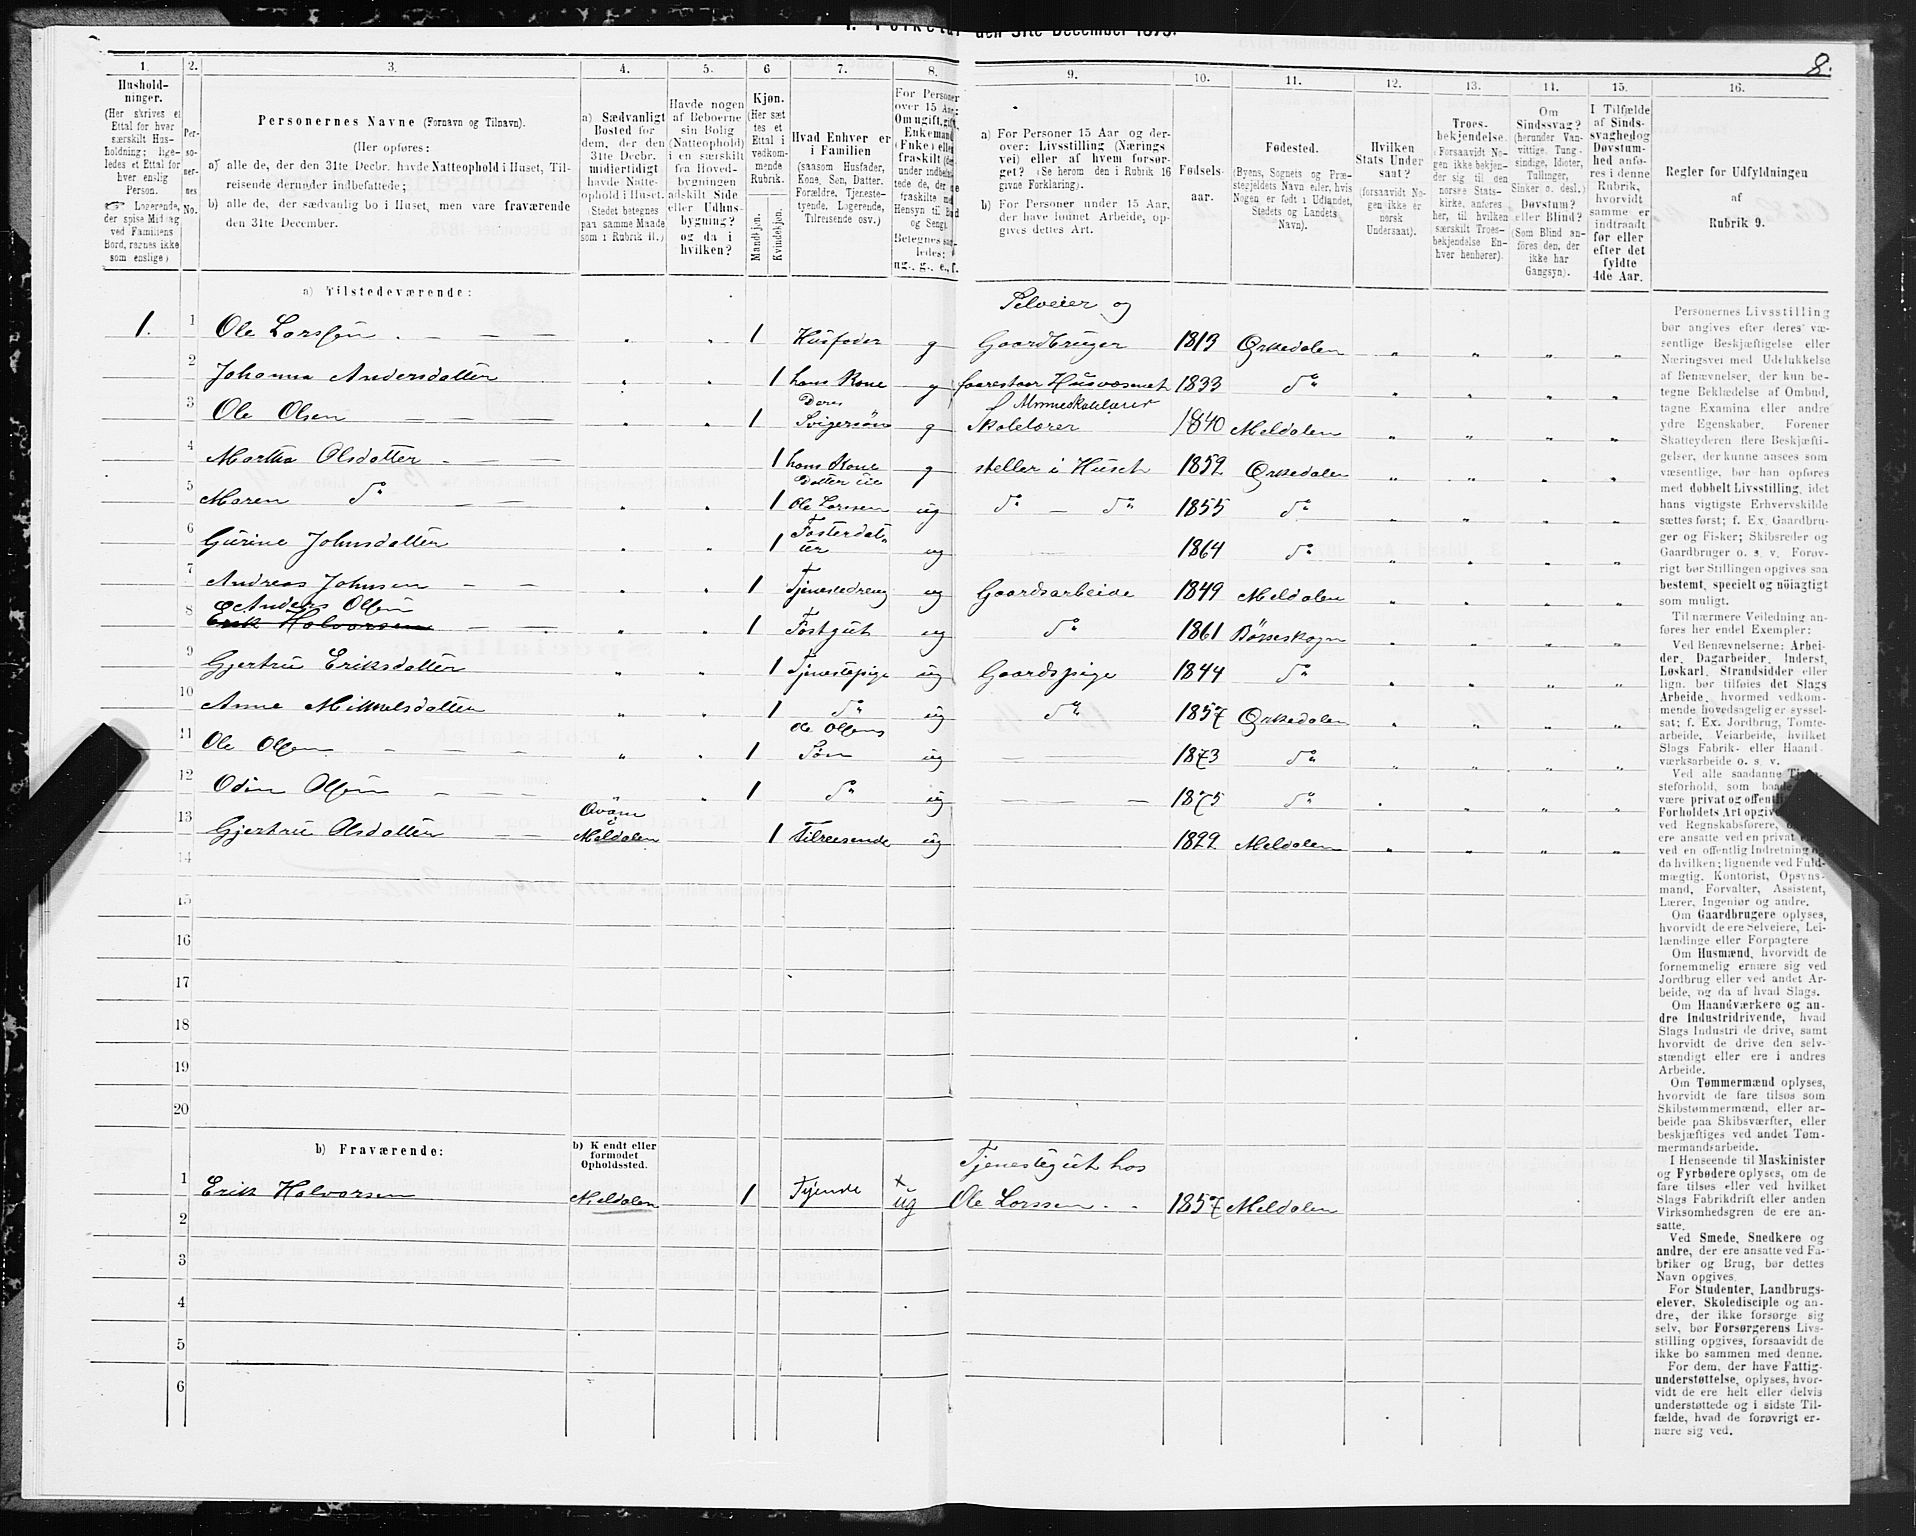 1. Folketal den 31te December 1875.
8.
1. 2. 3. 4. 5. 6 7. 8. 9. 10. 11. 12. 13. 14. 15. 16.
Hushold-
ninger.
(Her skrives et
Ettal for hver
særskilt Hus-
holdning; lige-
ledes et Ettal for
hver enslig
Person.
☞ Logerende,
der spise Middag
ved Familiens
Bord, regnes ikke
som enslige)
Per-
so-
ner-
nes
No.
Personernes Navne (Fornavn og Tilnavn).
(Her opføres:
a) alle de, der den 31te Decbr. havde Natteophold i Huset, Til-
reisende derunder indbefattede;
b) alle de, der sædvanlig bo i Huset, men vare fraværende
den 31te December.
a) Sædvanligt
Bosted for
dem, der den
31te Decbr.
midlertidigt
havde Natte-
ophold i Huset.
(Stedet betegnes
paa samme Maade
som i Rubrik 11.)
Havde nogen
af Beboerne
sin Bolig
(Natteophold)
i en særskilt
fra Hoved-
bygningen
adskilt Side
eller Udhus-
bygning?
og da i
hvilken?
Kjøn.
(Her sæt-
tes et
Ettal i
vedkom-
mende
Rubrik.
Mandkjøn.
Kvindekjøn.
Hvad Enhver er
i Familien
(saasom Husfader,
Kone, Søn, Datter.
Forældre, Tjeneste-
tyende, Logerende,
Tilreisende osv.)
For Personer
over 15 Aar:
Om ugift, gift,
Enkemand
(Enke) eller
fraskilt
ug., g., e., f.
a) For Personer 15 Aar og der-
over: Livsstilling (Nærings
vei) eller af hvem forsør-
get? (Se herom den i Rubrik 16
givne Forklaring).
b) For Personer under 15 Aar,
der have lønnet Arbeide, op-
gives dettes Art.
Fødsels-
aar.
Fødested.
(Byens, Sognets og Præ-
stegjeldets Navn eller, hvis
Nogen er født i Udlandet,
Stedets og Landets
Navn).
Hvilken
Stats Under
saat?
(forsaavidt No-
gen ikke er
norsk
Undersaat).
Troes-
bekjendelse.
(Forsaavidt No-
gen ikke bekjen-
der sig til den
norske Stats-
kirke, anføres
her, til hvilken
særskilt Troes-
bekjendelse En-
hver henhører).
Om
Sindssvag?
(herunder Van-
vittige, Tung-
sindige, Idioter,
Tullinger,
Sinker o. desl.)
Døvstum?
eller Blind?
(Som Blind an-
føres den, der
ikke har
Gangsyn).
I Tilfælde
af Sinds-
svaghed og
Døvstum-
hed anfø-
res i denne
Rubrik,
hvorvidt
samme er
indtraadt
før eller
efter det
fyldte
4de Aar.
Regler for Udfyldningen
af
Rubrik 9.
a) Tilstedeværende:
1. 1 Ole Larssen . — — " " 1 Husfader g Selveier og Gaardbruger 1813 Ørkedalen " " " "
2 Johanna Andersdatter " " 1 hans Kone g forestaar Husvæsenet 1833 do " " " "
3 Ole Olsen — — — " " 1 Deres Svigersøn g Skolelærer 1840 Meldalen " " " "
4 Martha Olsdatter - — — 1 hans Kone g steller i Huset 1852 Ørkedalen " " " "
5 Maren do — — " " 1 Datter til Ole Larssen ug do — do 1855 do " " " "
6 Gurine Johnsdatter " " 1 Fosterdatter ug 1864 do " " " "
7 Andreas Johnsen — — " " 1 Tjenestedreng ug Gaardsarbeide 1849 Meldalen " " " "
8 Anders Olsen
Erik Halvorsen — — " " 1 Fostgut ug do 1861 Børseskogn " " " "
9 Gjertru Eriksdatter " " 1 Tjenestepige ug Gaardspige 1844 do " " " "
10 Anne Mikkelsdatter " " 1 do ug do 1857 Ørkedalen " " " "
11 Ole Olsen — — — " " 1 Ole Olsens Søn ug — 1873 do " " " "
12 Odin Olsen — — — " " 1 do ug — — 1875 do " " " "
13 Gjertru Olsdatter — — Meldalen 1 Tilreisende ug 1822 Meldalen " " " "
14
15
16
17
18
19
20
b) Fraværende:
b) Kendt eller
formodet
Opholdssted.
1 Erik Halvorsen Meldalen 1 Tjende ug Tjenestegut hos Ole Larssen . . 1857 Meldalen
2
3
4
5
6
Personernes Livsstilling
bør angives efter deres væ-
sentlige Beskjæftigelse eller
Næringsvei med Udelukkelse
af Benævnelser, der kun be-
tegne Beklædelse af Ombud,
tagne Examina eller andre
ydre Egenskaber. Forener
Skatteyderen flere Beskjæfti-
gelser, der kunne ansees som
væsentlige, bør han opføres
med dobbelt Livsstilling, idet
hans vigtigste Erhvervskilde
sættes først; f. Ex. Gaardbru-
ger og Fisker; Skibsreder og
Gaardbruger o. s. v. Forøv-
rigt bør Stillingen opgives saa
bestemt, specielt og nöiagtigt
som muligt.
Til nærmere Veiledning an-
føres her endel Exempler:
Ved Benævnelserne: Arbei-
der, Dagarbeider, Inderst,
Løskarl, Strandsidder eller
lign. bør tilføies det Slags
Arbeide, hvormed vedkom-
mende hovedsagelig er syssel-
sat; f. Ex. Jordbrug, Tomte-
arbeide, Veiarbeide, hvilket
Slags Fabrik- eller Haand-
værksarbeide o. s. v.
Ved alle saadanne
steforhold, som baade
være privat og offentlig,
Forholdets Art opgives
ved Regnskabsførere,
ere ansatte ved en privat
ved en offentlig Indretning og
da hvilken; lignende ved Fuld-
mægtig, Kontorist, Opsyns-
mand, Forvalter, Assistent,
Lærer, Ingeniør og andre.
Om Gaardbrugere oplyses,
hvorvidt de ere Selveiere, Lei-
lændinge eller Forpagtere
Om Husmænd, hvorvidt de
fornemmelig ernære sig ved
Jordbrug eller ved andet Ar-
beide, og da af hvad Slags.
Om Haandværkere og an-
dre Industridrivende, hvad
Slags Industri de drive, samt
hvorvidt de drive den selv-
stændigt eller ere i andres
Arbeide.
Om Tømmermænd oplyses,
hvorvidt de fare tilsøs som
Skibstømmermænd, eller ar-
beide paa Skibsværfter, eller
beskjæftiges ved andet Tøm-
mermandsarbeide.
I Henseende til Maskinister
og Fyrbødere oplyses, om de
fare tilsøs eller ved hvilket
Slags Fabrikdrift eller anden
Virksomhedsgren de ere an-
satte.
Ved Smede, Snedkere og
andre, der ere ansatte ved Fa-
briker og Brug, bør dettes
Navn opgives.
For Studenter, Landbrugs-
elever, Skoledisciple og an-
dre, der ikke forsørge sig
selv, bør Forsørgerens Livs-
stilling opgives, forsaavidt de
ikke bo sammen med denne.
For dem, der have Fattig-
understøttelse, oplyses, hvor-
vidt de ere helt eller delvis
understøttede og i sidste Til-
fælde, hvad de forøvrigt er-
nære sig ved.